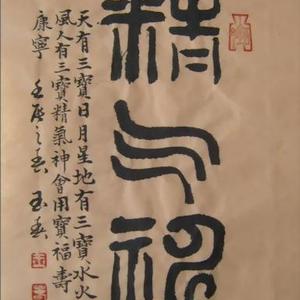 精气神
天有三寶日月星地有三寶水火
風人有三寶精氣神會用寶福壽
康寧 壬辰之春